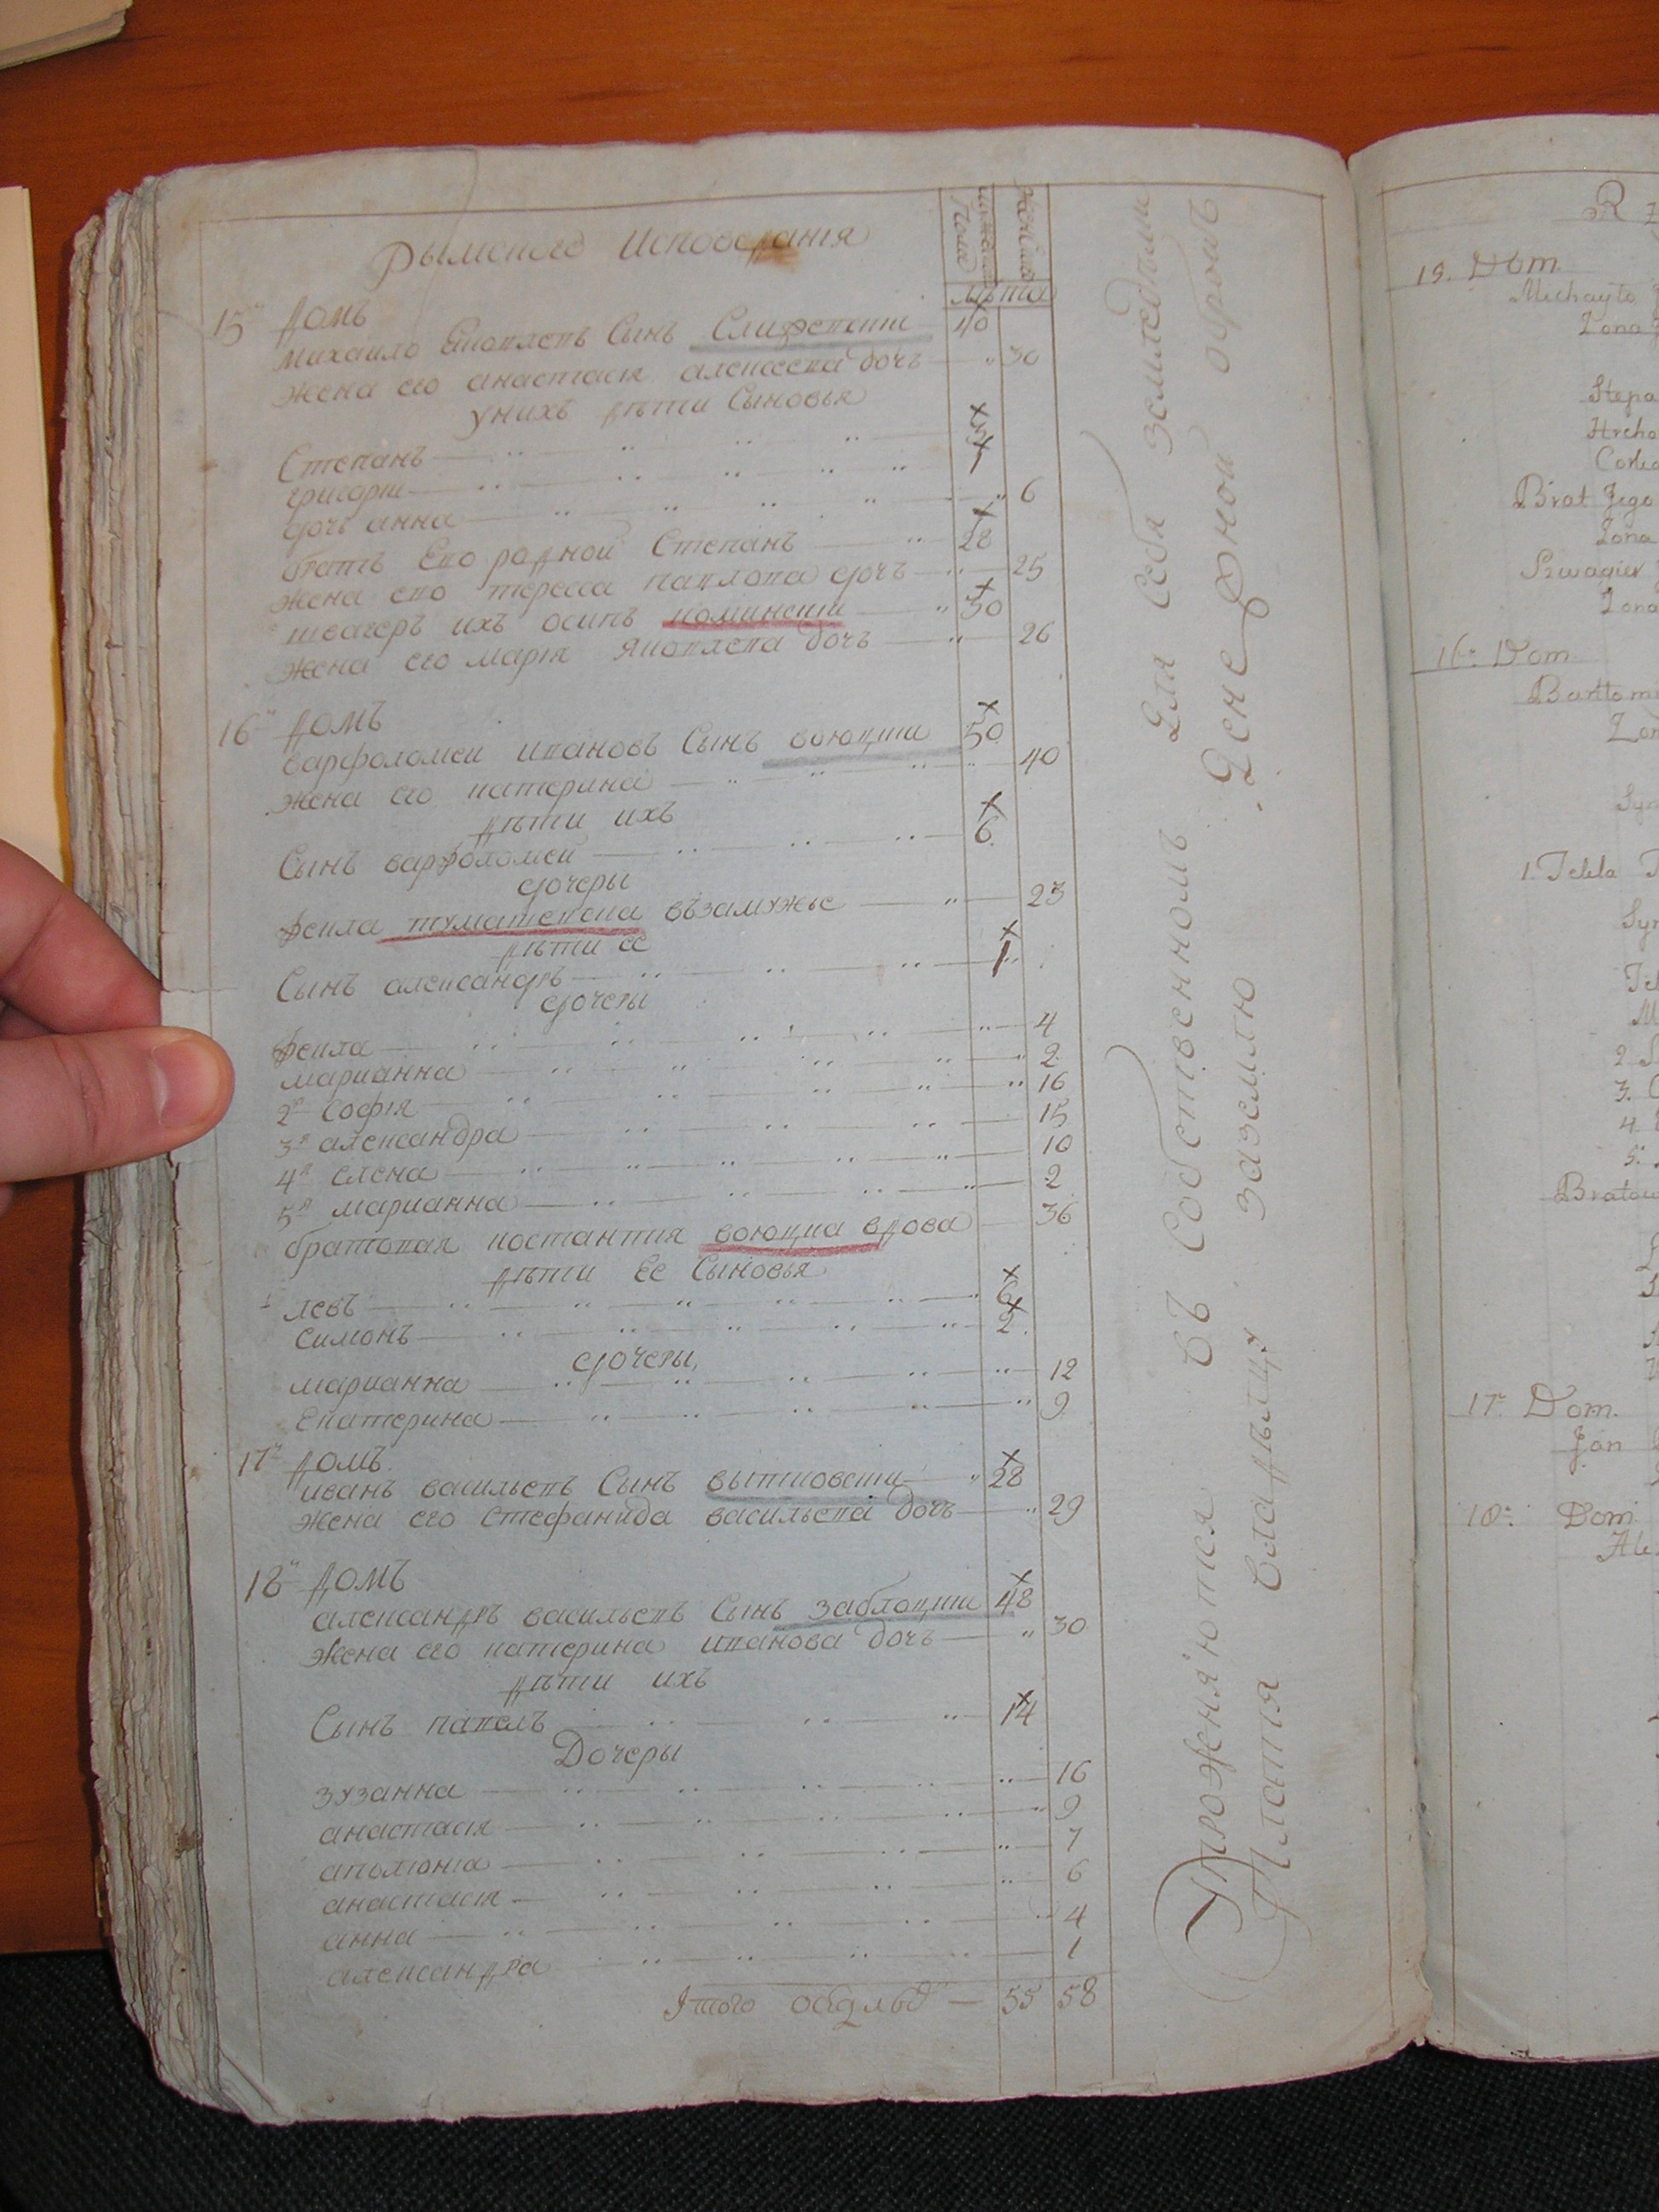 Рымского Исповеданія
Мужеска Пола
Женска
Лѣта
15й Домъ
михаило Яковлевъ Сынъ 40
жена его анастасія алексеева дочъ " 30
унихъ дѣти Сыновья
Степанъ
григори 1
дочъ анна " 6
братъ Его родной Степанъ 28
жена его тересса павлова дочъ 25
швагеръ ихъ осипъ комински " 30
жена его марія Яковлева дочъ 26
16й Домъ
варфоломеи ивановъ Сынъ воюцки 50
жена его катерина 40
дѣти ихъ
Сынъ варфоломеи 6
дочеры
фекла туматевска възамужье 23
дѣти ее
Сынъ александръ 1
дочеры
фекла 4
марианна 2
2я Софія 16
3я александра 15
4я елена 10
5я марианна 2
братовая костантия воюцка вдова 36
дѣти Ее Сыновья
левъ 6
симонъ 2
дочеры
марианна 12
Екатерина 9
17й Домъ
иванъ васильевъ Сынъ витковски " 28
жена его Стефанида васильева дочъ 29
18й Домъ
александръ васильевъ Сынъ заблоцки 48
жена его катерина иванова дочъ " 30
дѣти ихъ
Сынъ павелъ 14
Дочеры
зузанна 16
анастасія 9
аполіонія 7
анастасія 6
анна 4
александра 1
Ітого 55 58
Упрожняются въ Собственномъ Для Себя земледѣлии
Платя владѣлцу заземлю Денежной оброкъ
R
15. Dom
Michayło
Żona
Stepa
Hreho
Brat Jego
Żona
Szwagier
Żona
16. Dom
Bartłom
Żon
Syn
1. Tekla
Syn
2
3.
4
5.
Bratow
17. Dom.
Jan
18. Dom
Ale